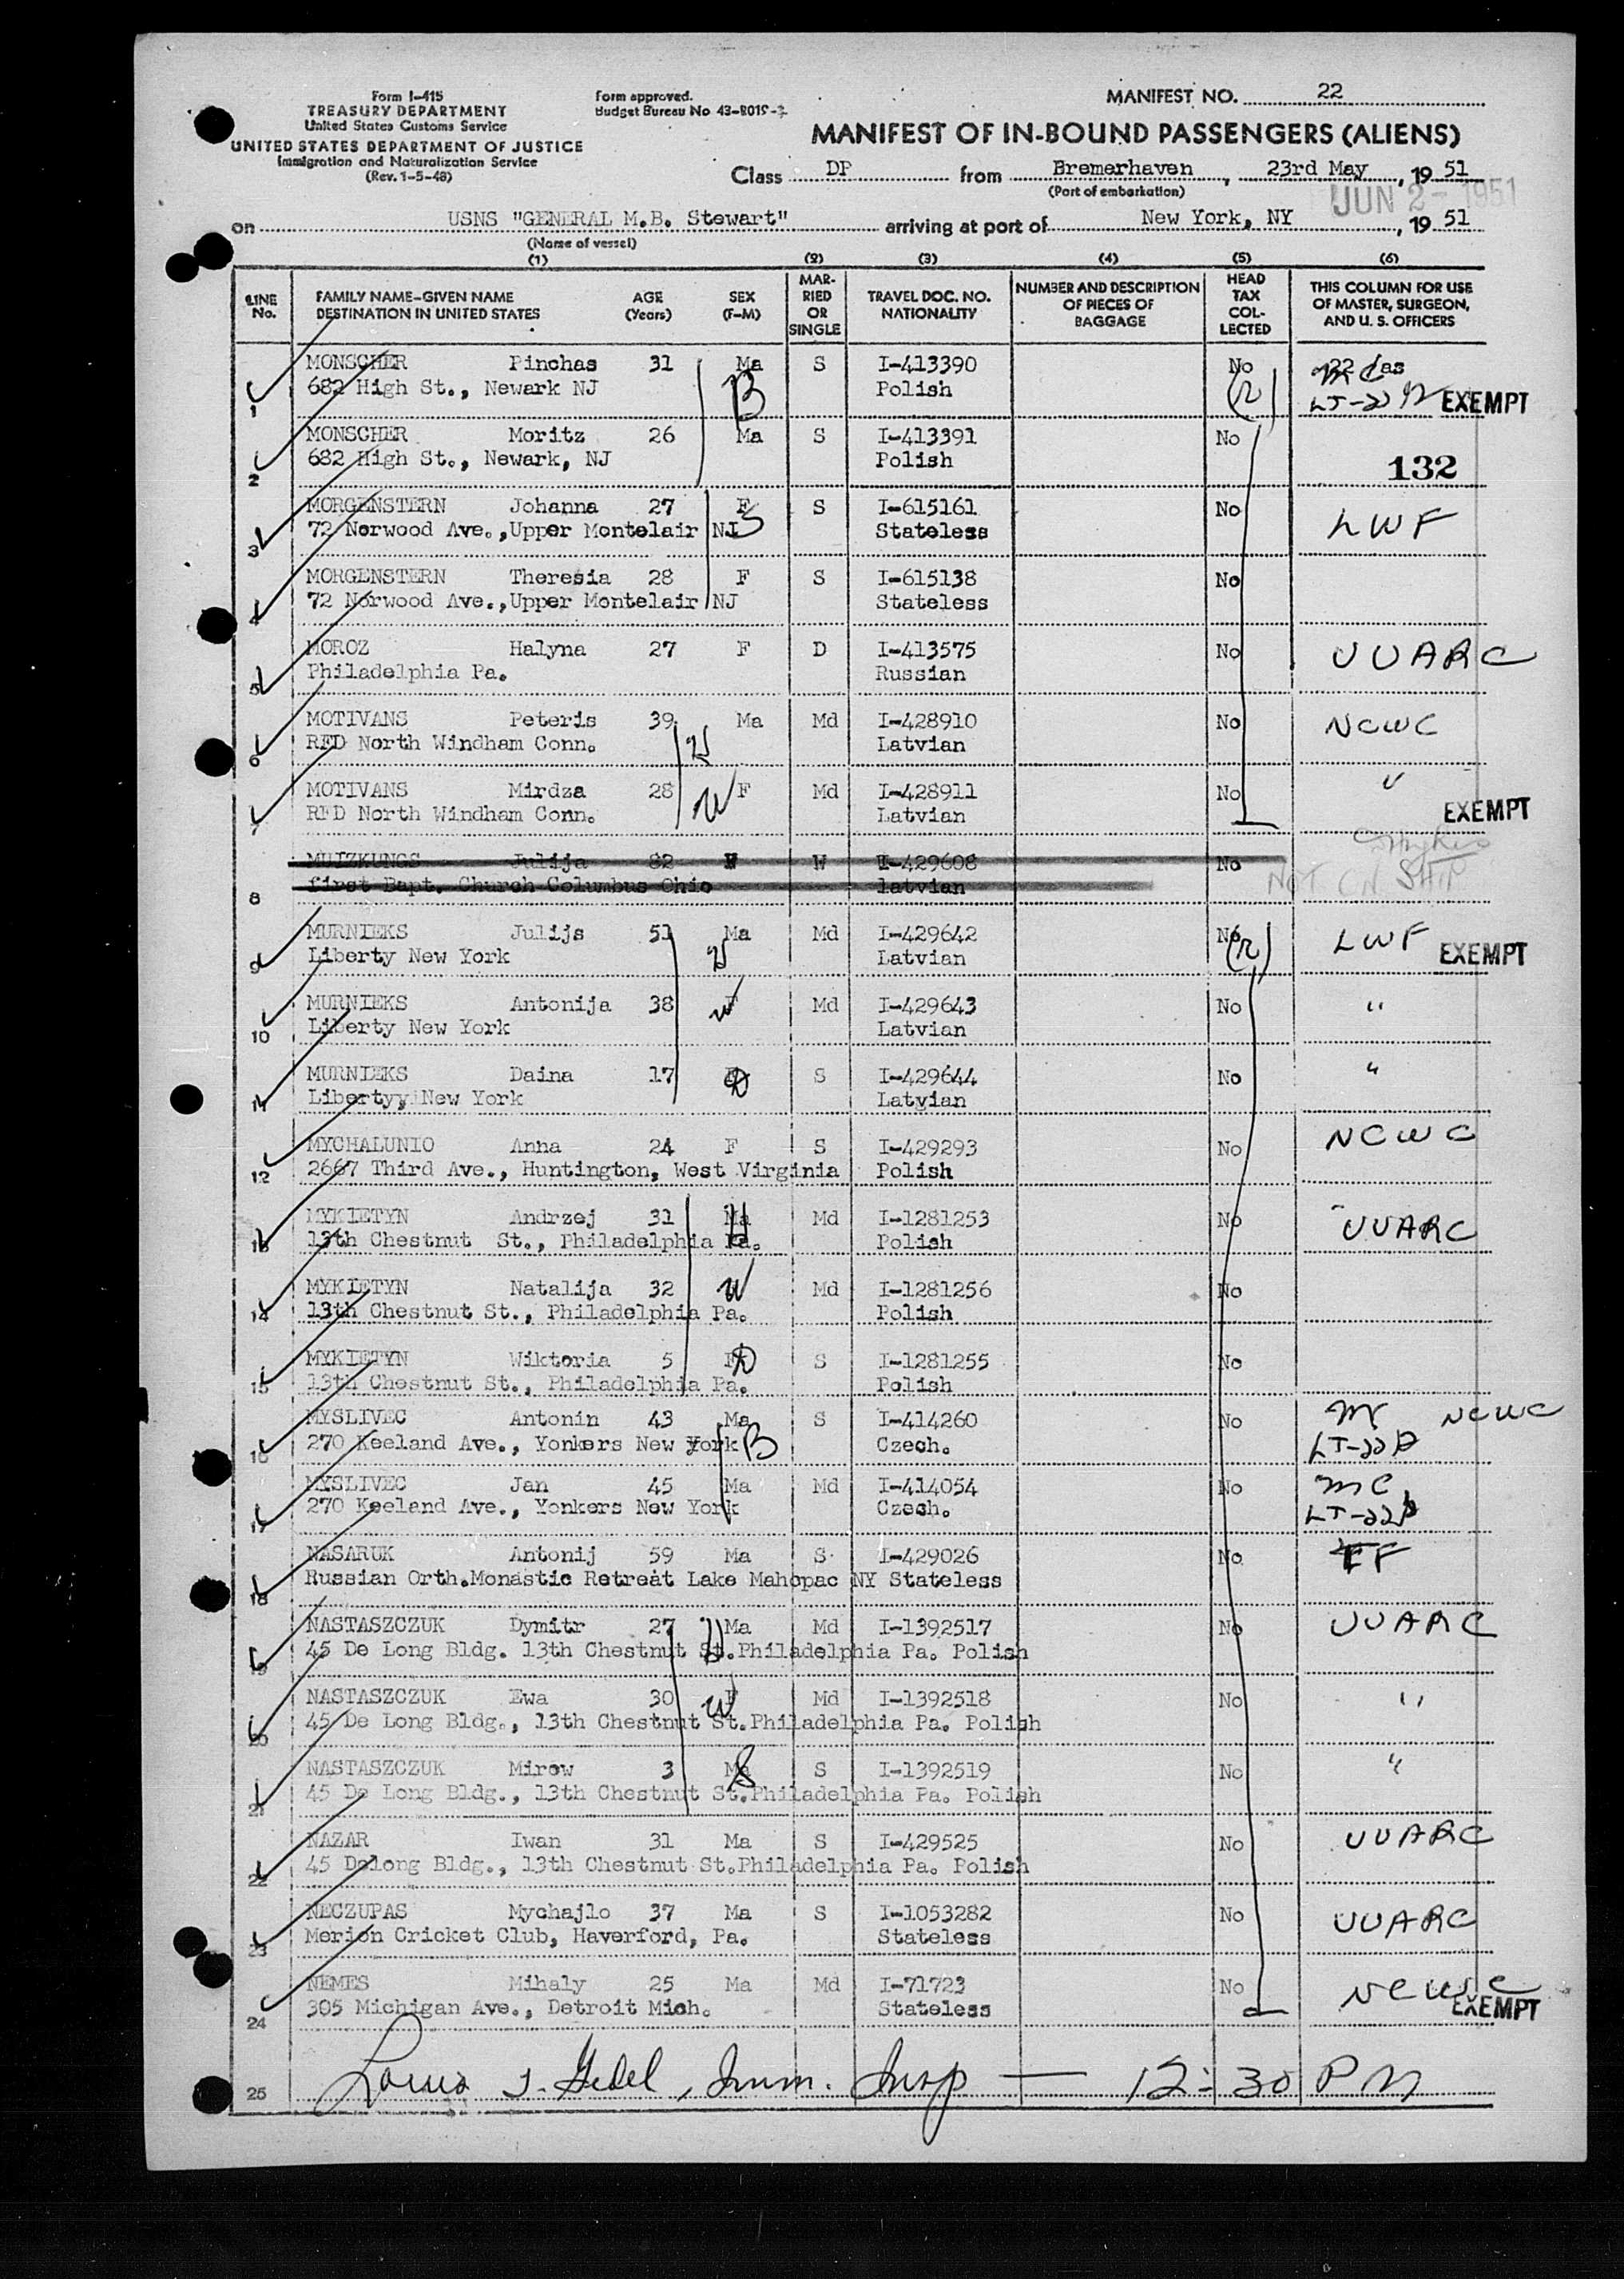 Form I-415
TREASURY DEPARTMENT
United States Customs Service
UNITED STATES DEPARTMENT OF JUSTICE
Immigration and Naturalization Service
(Rev. 1-5-48)
Form approved.
Budget Bureau No 43-R019-
MANIFEST NO. 22
MANIFEST OF IN-BOUND PASSENGERS (ALIENS)
Class DP from Bremerhaven, 23rd May, 1951
(Port of embarkation)
JUN 2 - 1951
on USNS "GENERAL M.B. Stewart" arriving at port of New York, NY, 1951
(Name of vessel)
(1) (2) (3) (4) (5) (6)
LINE No. FAMILY NAME-GIVEN NAME DESTINATION IN UNITED STATES AGE (Years) SEX (F-M) MAR-RIED OR SINGLE TRAVEL DOC. NO. NATIONALITY NUMBER AND DESCRIPTION OF PIECES OF BAGGAGE HEAD TAX COL-LECTED THIS COLUMN FOR USE OF MASTER, SURGEON, AND U. S. OFFICERS
1 MONSCHER Pinchas 31 Ma S I-413390 No
682 High St., Newark NJ B Polish (r) EXEMPT
2 MONSCHER Moritz 26 Ma S I-413391 No
682 High St., Newark, NJ Polish 132
3 MORGENSTERN Johanna 27 F S I-615161 No LWF
72 Norwood Ave.,Upper Montelair NJ S Stateless
4 MORGENSTERN Theresia 28 F S I-615138 No
72 Norwood Ave.,Upper Montelair NJ Stateless
5 MOROZ Halyna 27 F D I-413575 No UUARC
Philadelphia Pa. Russian
6 MOTIVANS Peteris 39 Ma Md I-428910 No NCWC
RFD North Windham Conn. H Latvian
7 MOTIVANS Mirdza 28 F Md I-428911 No "
RFD North Windham Conn. W Latvian EXEMPT
8 MUIZKUNGS Julija 82 F W I-429608 No
first Bapt. Church Columbus Ohio latvian NOT ON SHIP
9 MURNIEKS Julijs 51 Ma Md I-429642 No LWF
Liberty New York H Latvian (r) EXEMPT
10 MURNIEKS Antonija 38 F W Md I-429643 No "
Liberty New York Latvian
11 MURNIEKS Daina 17 F D S I-429644 No "
Libertyy New York Latvian
12 MYCHALUNIO Anna 24 F S I-429293 No NCWC
2667 Third Ave., Huntington, West Virginia Polish
13 MYKIETYN Andrzej 31 Ma H Md I-1281253 No UUARC
13th Chestnut St., Philadelphia Pa. Polish
14 MYKIETYN Natalija 32 W Md I-1281256 No
13th Chestnut St., Philadelphia Pa. Polish
15 MYKIETYN Wiktoria 5 F D S I-1281255 No
13th Chestnut St., Philadelphia Pa. Polish
16 MYSLIVEC Antonin 43 Ma S I-414260 No NCWC
270 Keeland Ave., Yonkers New york B Czech.
17 MYSLIVEC Jan 45 Ma Md I-414054 No MC
270 Keeland Ave., Yonkers New York Czech.
18 NASARUK Antonij 59 Ma S I-429026 No
Russian Orth.Monastic Retreat Lake Mahopac NY Stateless
19 NASTASZCZUK Dymitr 27 H Ma Md I-1392517 No UUARC
45 De Long Bldg. 13th Chestnut St.Philadelphia Pa. Polish
20 NASTASZCZUK Ewa 30 F W Md I-1392518 No "
45 De Long Bldg., 13th Chestnut St.Philadelphia Pa. Polish
21 NASTASZCZUK Mirow 3 Ma S S I-1392519 No "
45 De Long Bldg., 13th Chestnut St.Philadelphia Pa. Polish
22 NAZAR Iwan 31 Ma S I-429525 No UUARC
45 Delong Bldg., 13th Chestnut St.Philadelphia Pa. Polish
23 NECZUPAS Mychajlo 37 Ma S I-1053282 No UUARC
Merion Cricket Club, Haverford, Pa. Stateless
24 NEMES Mihaly 25 Ma Md I-71723 No NCWC
305 Michigan Ave., Detroit Mich. Stateless EXEMPT
25 Louis J. Gedel, Imm. Insp — 12:30 PM